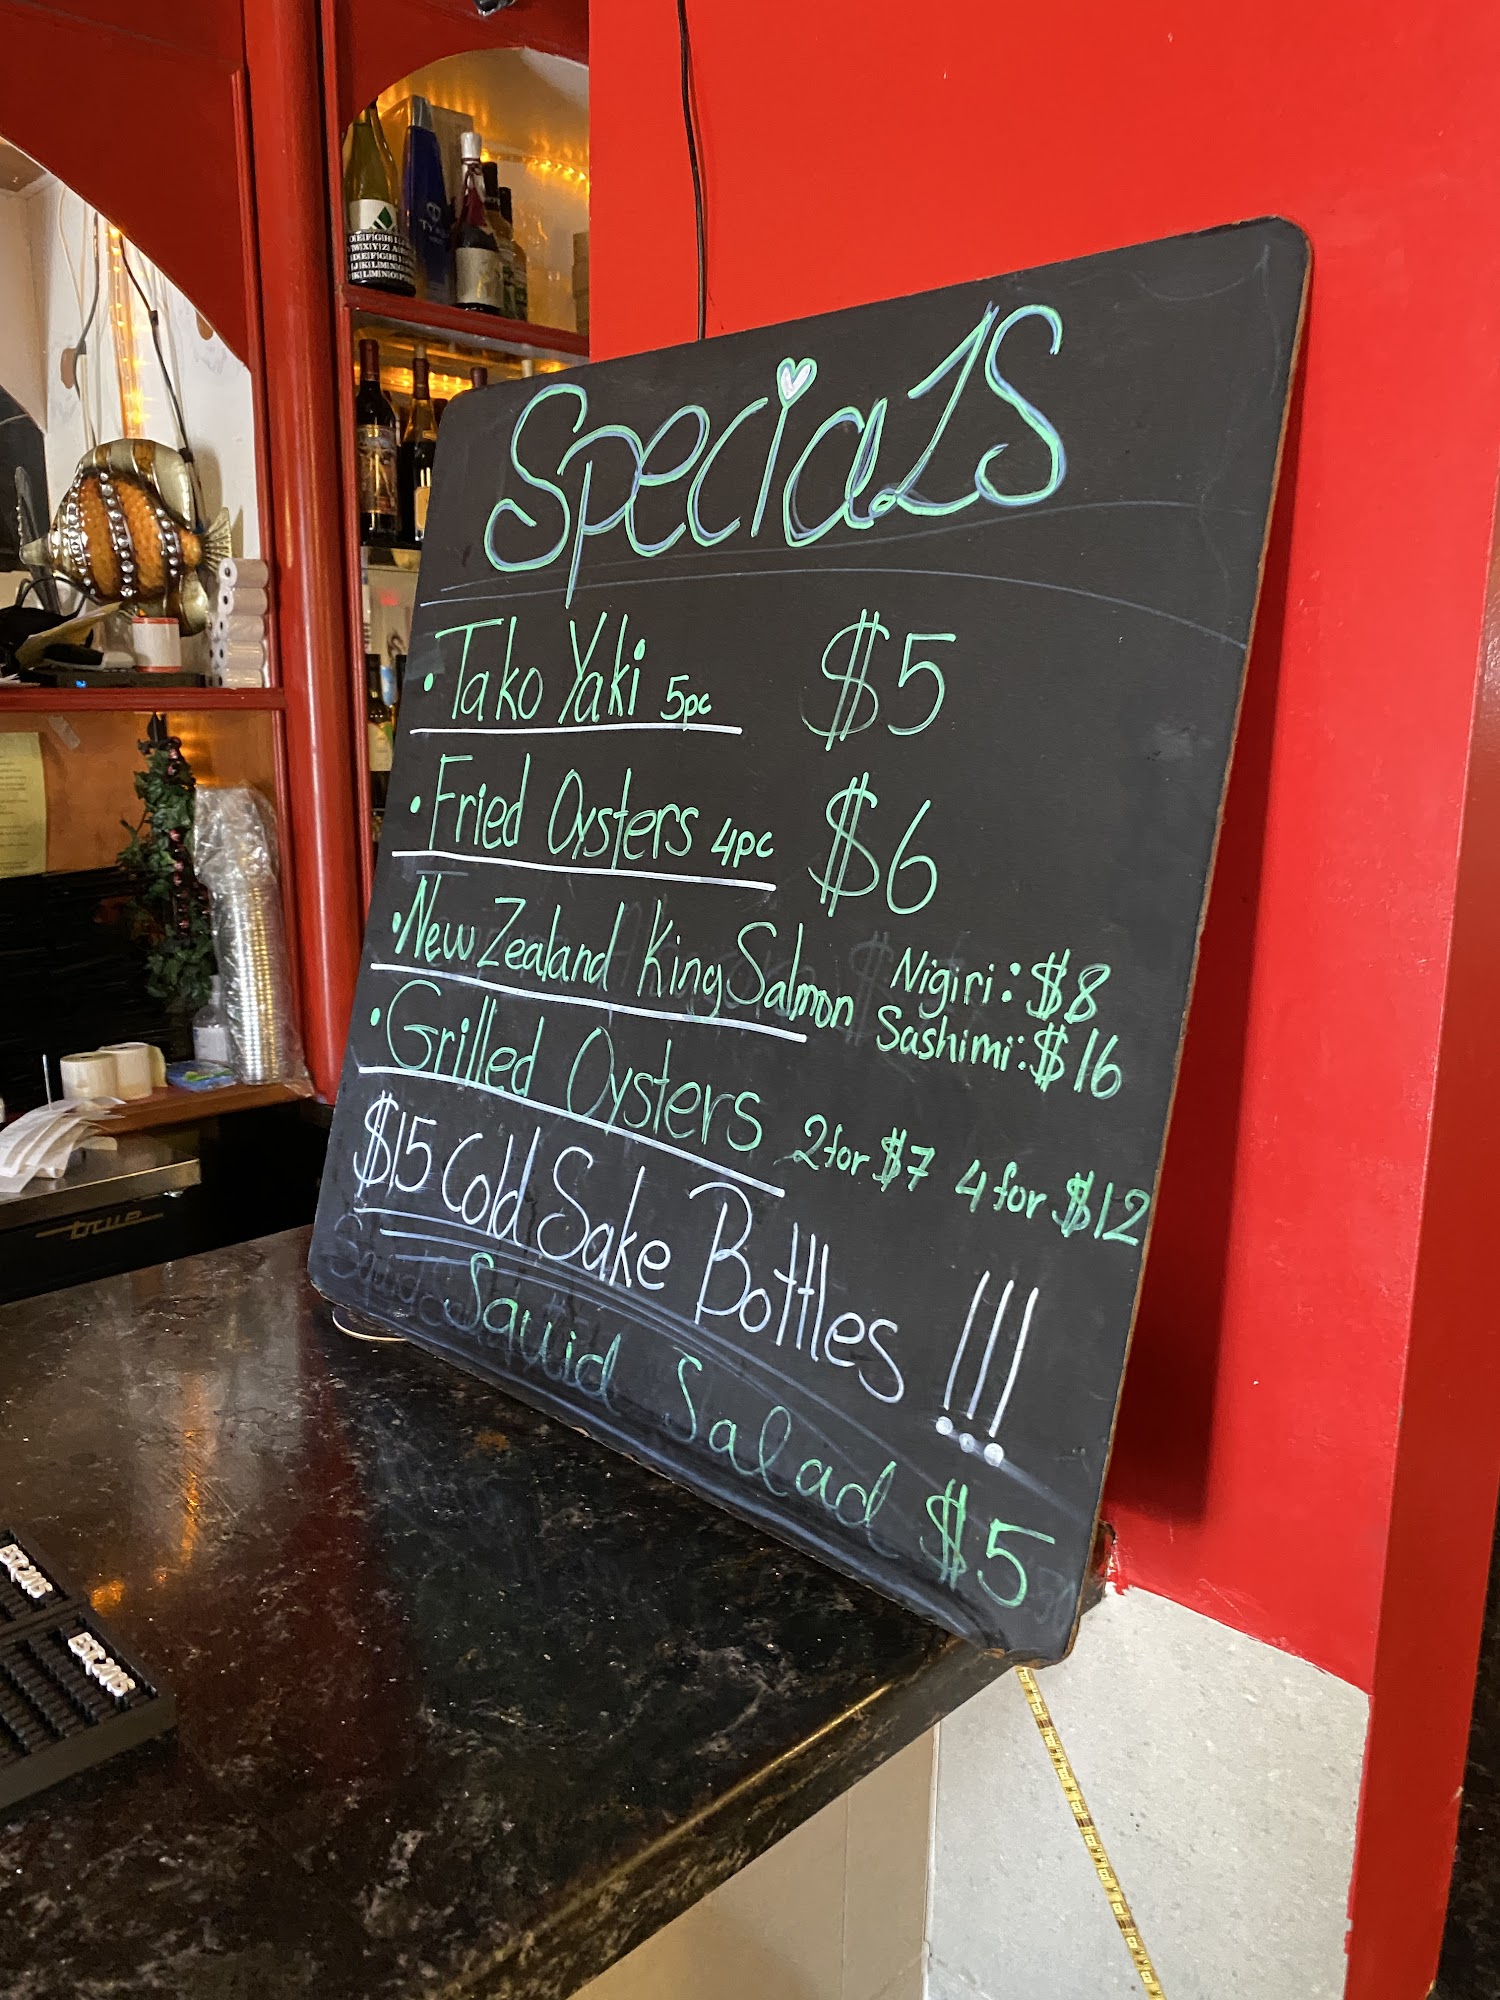 Specials
• Tako Yaki 5pc $5
• Fried Oysters 4pc $6
• New Zealand King Salmon Nigiri: $8
Sashimi: $16
• Grilled Oysters 2 for $7 4 for $12
$15 Cold Sake Bottles !!!
Squid Salad $5
true
EST. 2005
EST. 2005